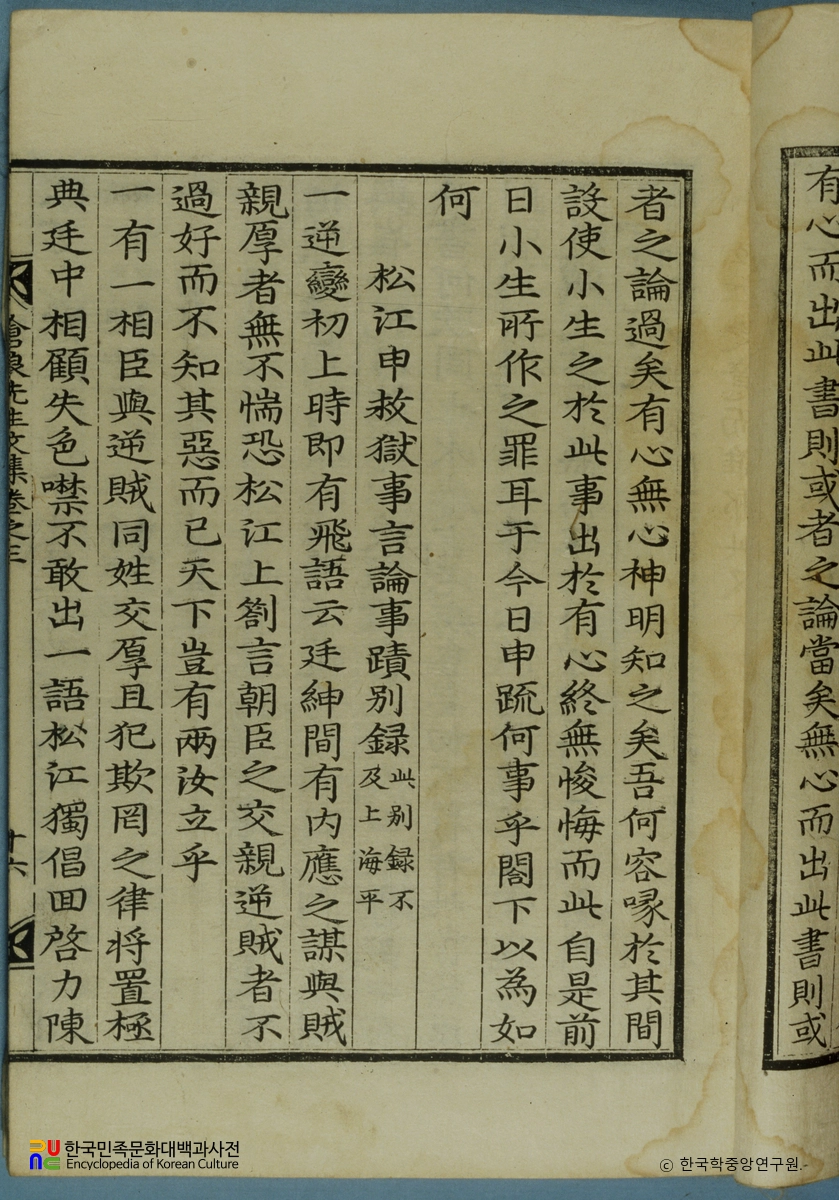 有心而出此書則或者之論當矣無心而出此書則或
者之論過矣有心無心神明知之矣吾何容喙於其間
設使小生之於此事出於有心終無悛悔而此自是前
日小生所作之罪耳于今日申䟽何事乎閤下以為如
何
松江申救獄事言論事蹟别録此别録不及上海平
一逆變初上時即有飛語云廷紳間有内應之謀與賊
親厚者無不惴恐松江上劄言朝臣之交親逆賊者不
過好而不知其惡而已天下豈有兩汝立乎
一有一相臣與逆賊同姓交厚且犯欺罔之律將置極
典廷中相顧失色噤不敢出一語松江獨倡回啓力陳
滄浪先生文集卷之三
十六
한국민족문화대백과사전
Encyclopedia of Korean Culture
ⓒ 한국학중앙연구원.